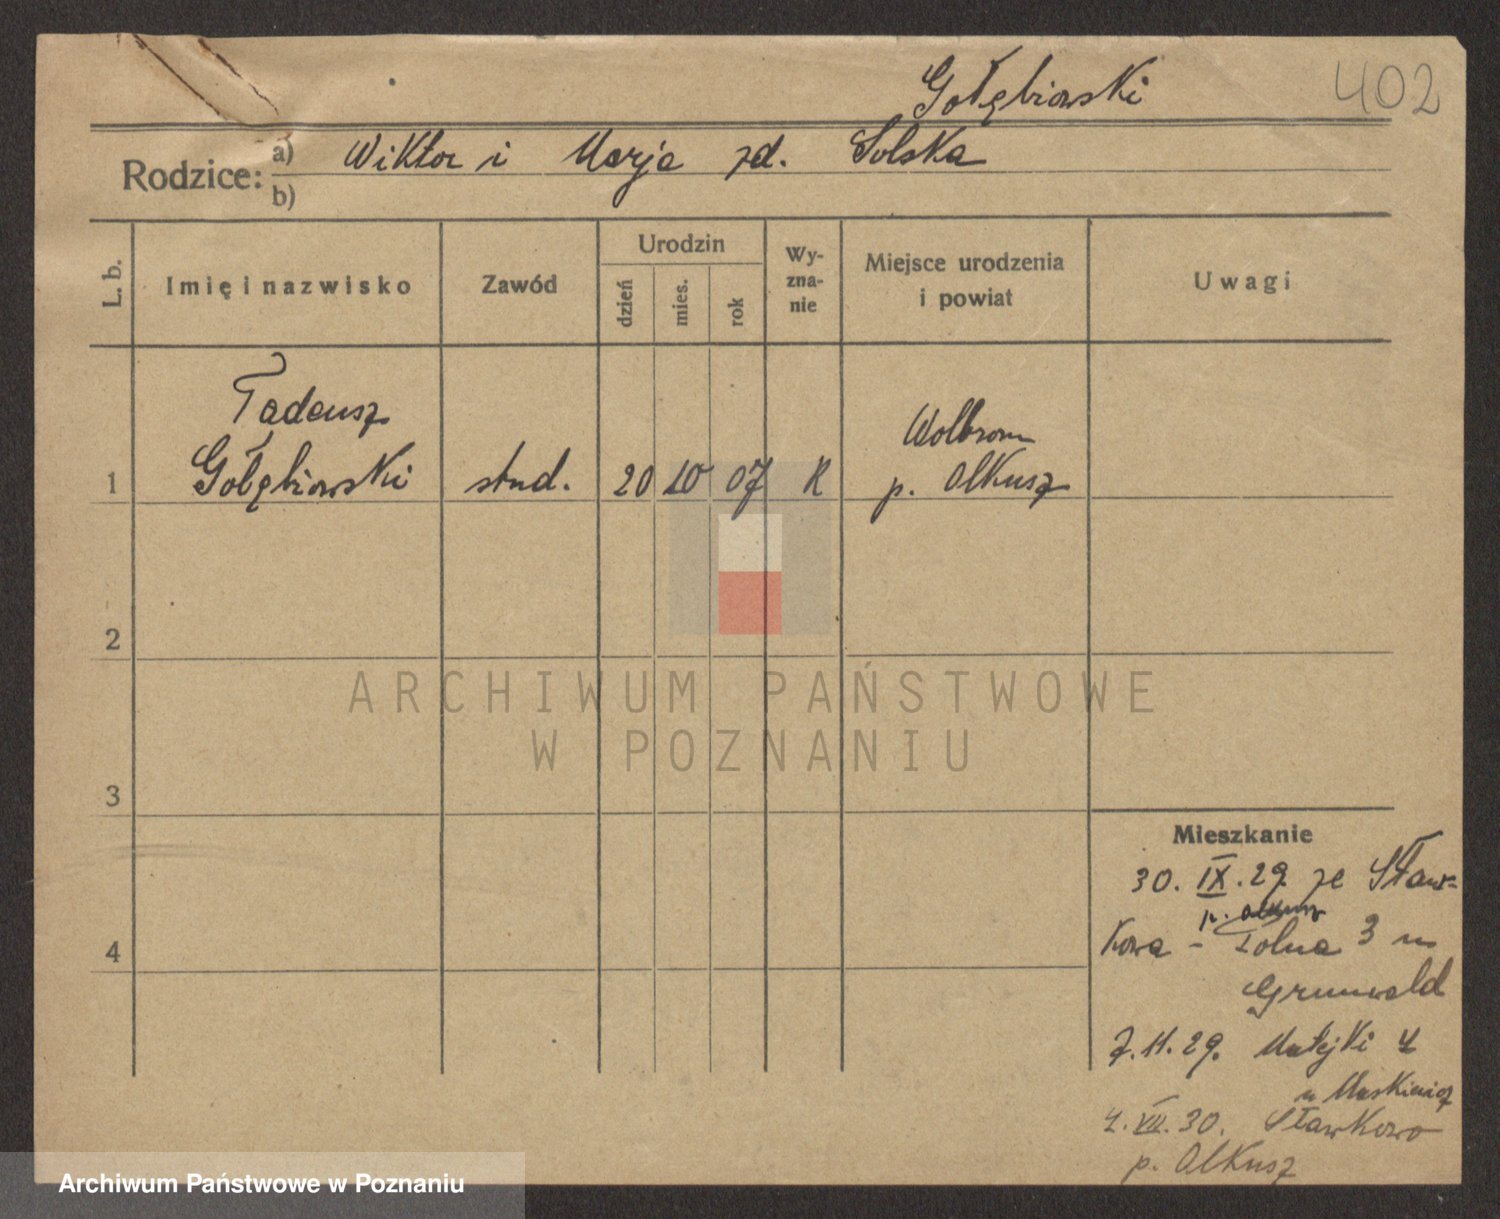 402
Gołębiowski
Rodzice: a) Wiktor i Marja zd. Solska
b)
L. b.
Imię i nazwisko
Zawód
Urodzin
dzień
mies.
rok
Wy-
zna-
nie
Miejsce urodzenia
i powiat
Uwagi
Tadeusz
Wolbrom
1 Gołębiowski stud. 20 10 07 R p. Olkusz
2
3
4
Mieszkanie
30. IX. 29. ze Sław-
p. Olkusz
kowa - Polna 3 u
Grunwald
7.11.29. Matejki 4
u Maskiewicz
4. VII. 30. Sławkowo
p. Olkusz
ARCHIWUM PAŃSTWOWE
W POZNANIU
Archiwum Państwowe w Poznaniu